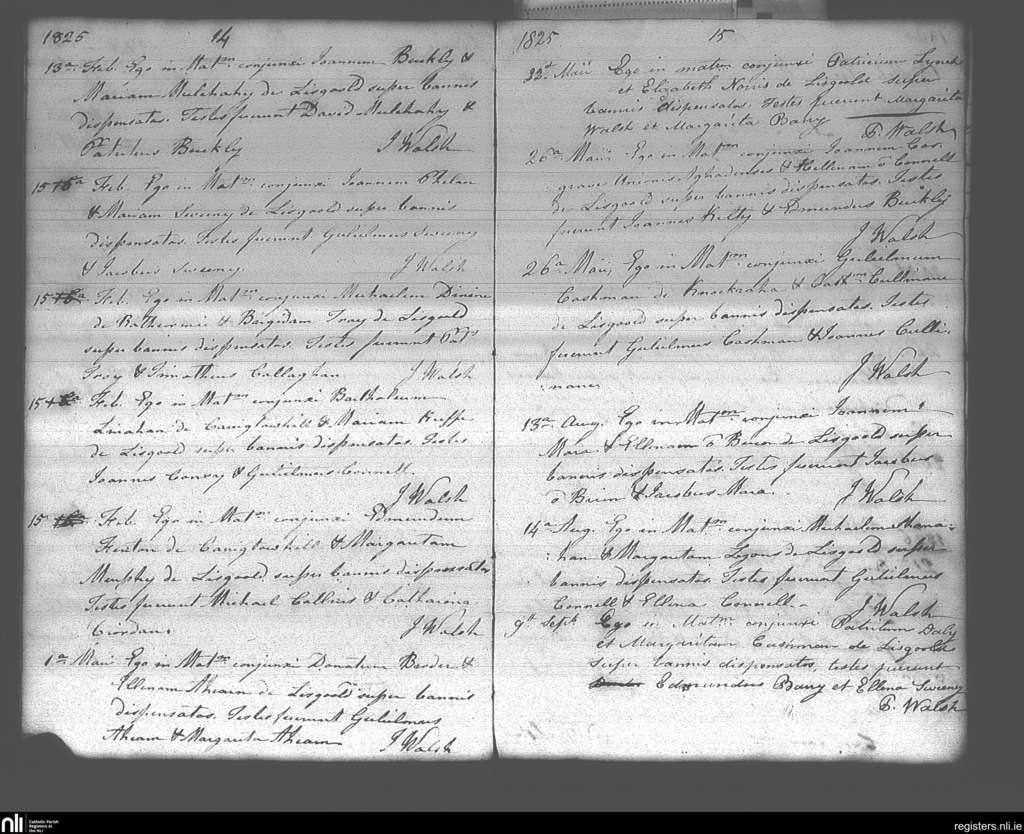 1825 14
13a. Feb. Ego in Matm. conjunxi Joannem Buckly &
Mariam Mulchahy de Lisgoold super bannis
dispensatos. Testes fuerunt David Mulchahy &
Patritius Buckly J Walsh
15 Feb. Ego in Matm. conjunxi Joannem Phelan
& Mariam Sweeny de Lisgoold super bannis
dispensatos. Testes fuerunt Gulielmus Sweeny
& Jacobus Sweeny. J Walsh
15 Feb. Ego in Matm. conjunxi Michaelem
de & Brigidam Tracy de Lisgoold
super bannis dispensatos. Testes fuerunt
& Timotheus Callaghan. J Walsh
15 Feb. Ego in Matm. conjunxi Bartholeum
Linahan de Caniglowhill & Mariam
de Lisgoold super bannis dispensatos. Testes
Joannes & Gulielmus Connell.
J Walsh
15 Feb. Ego in Matm. conjunxi Edmundum
de Caniglowhill & Margaretam
Murphy de Lisgoold super bannis dispensatos
Testes fuerunt Michael Collins & Catharina
J Walsh
1a. Maii Ego in Matm. conjunxi Donatum &
Ellenam Ahearn de Lisgoold super bannis
dispensatos. Testes fuerunt Gulielmus
Ahearn & Margarita Ahearn J Walsh
1825 15
22d. Maii Ego in matm. conjunxi Patricium Lynch
et Elizabeth de Lisgoold super
bannis dispensatos. Testes fuerunt Margarita
Walsh et Margarita Barry
P. Walsh
26a. Maii Ego in Matm. conjunxi Joannem Cos-
grave Unionis & Hellenam O Connell
de Lisgoold super bannis dispensatos. Testes
fuerunt Joannes & Edmundus Buckly
J Walsh
26a. Maii, Ego in Matm. conjunxi Gulielmum
Cashman de Knockraha & Cullinane
de Lisgoold super bannis dispensatos. Testes
fuerunt Gulielmus Cashman & Joannes Culli-
:nane J Walsh
13a. Aug. Ego in Matm. conjunxi Joannem
Mara & Ellenam o de Lisgoold super
bannis dispensatos. Testes fuerunt Jacobus
o & Jacobus Mara. J Walsh
14a Aug. Ego in Matm. conjunxi Michaelem Shana:
:han & Margaritam Lyons de Lisgoold super
bannis dispensatos. Testes fuerunt Gulielmus
Connell & Ellena Connell. J Walsh
9th Sept Ego in Matm. conjunxi Patritium Daly
et Margaritam Cashman de Lisgoold
super bannis dispensatos, testes fuerunt
Edmundus Barry et Ellena Sweeny
P. Walsh
nli Catholic Parish
Registers at
the NLI
registers.nli.ie